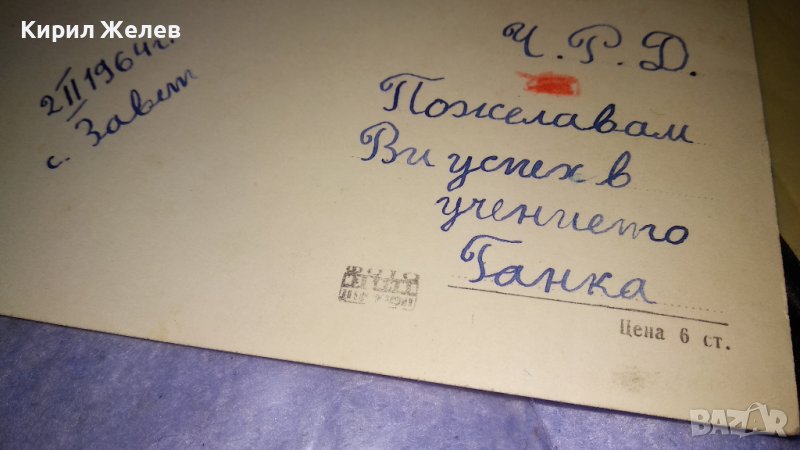 Кирил Желев
2 II 1964 г.
с. Завет
Ч. Р. Д.
Пожелавам
Ви успех в
учението
Ганка
Цена 6 ст.
BAZAR